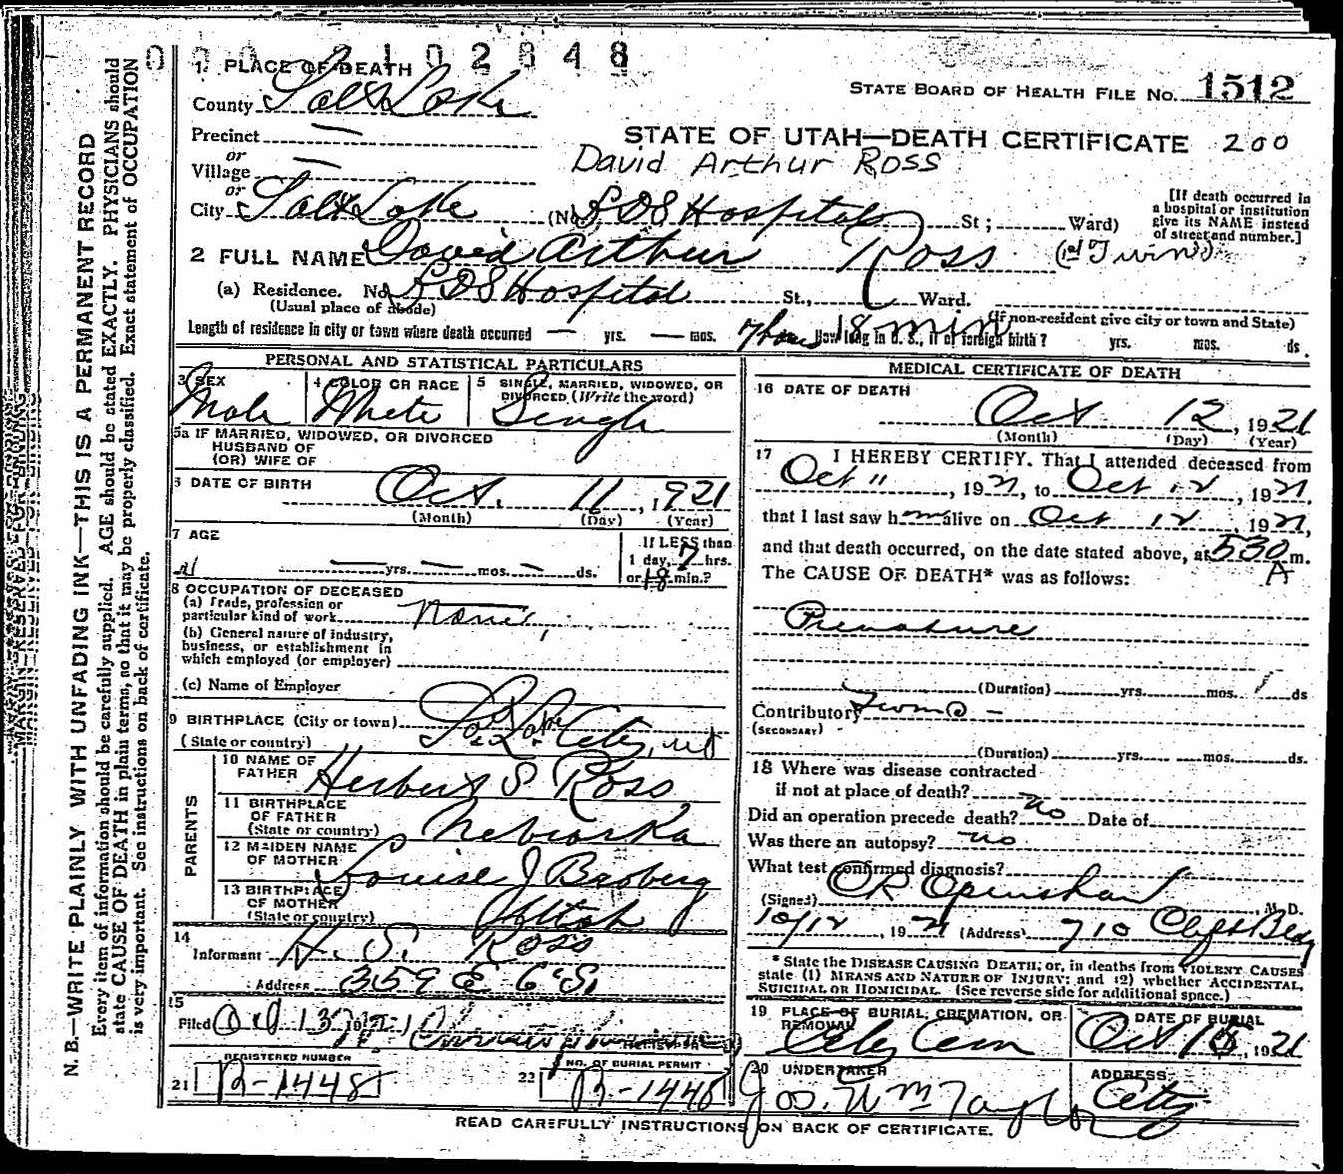 0 0 0 2 1 0 2 8 4 8
1. PLACE OF DEATH
STATE BOARD OF HEALTH FILE NO. 1512
County Salt Lake
Precinct —
STATE OF UTAH—DEATH CERTIFICATE 200
or
Village —
David Arthur Ross
or
City Salt Lake (No. LDS Hospital St; Ward)
[If death occurred in
a hospital or institution
give its NAME instead
of street and number.]
2 FULL NAME David Arthur Ross (1st Twin)
(a) Residence. No. LDS Hospital St., Ward.
(Usual place of abode)
(If non-resident give city or town and State)
Length of residence in city or town where death occurred — yrs. — mos. 7 hours 18 min How long in U. S., if of foreign birth? yrs. mos. ds.
PERSONAL AND STATISTICAL PARTICULARS
3 SEX
Male
4 COLOR OR RACE
White
5 SINGLE, MARRIED, WIDOWED, OR
DIVORCED (Write the word)
Single
5a IF MARRIED, WIDOWED, OR DIVORCED
HUSBAND OF
(OR) WIFE OF
6 DATE OF BIRTH
Oct. 11, 1921
(Month) (Day) (Year)
7 AGE
— yrs. — mos. — ds.
If LESS than
1 day, 7 hrs.
or 18 min.?
8 OCCUPATION OF DECEASED
(a) Trade, profession or
particular kind of work None
(b) General nature of industry,
business, or establishment in
which employed (or employer)
(c) Name of Employer
9 BIRTHPLACE (City or town) Salt Lake City, Ut
(State or country)
PARENTS
10 NAME OF
FATHER Herbert S Ross
11 BIRTHPLACE
OF FATHER
(State or country) Nebraska
12 MAIDEN NAME
OF MOTHER Louise J Broberg
13 BIRTHPLACE
OF MOTHER
(State or country) Utah
14
Informant H. S. Ross
Address 359 E 6th S.
15
Filed Oct 13 1921
REGISTERED NUMBER
21 B-1448
NO. OF BURIAL PERMIT
22 B-1448
MEDICAL CERTIFICATE OF DEATH
16 DATE OF DEATH
Oct 12, 1921
(Month) (Day) (Year)
17 I HEREBY CERTIFY. That I attended deceased from
Oct 11, 1921, to Oct 12, 1921,
that I last saw him alive on Oct 12, 1921,
and that death occurred, on the date stated above, at 530 A m.
The CAUSE OF DEATH* was as follows:
Premature
(Duration) yrs. mos. 1 ds
Contributory Twins —
(SECONDARY)
(Duration) yrs. mos. ds.
18 Where was disease contracted
if not at place of death?
Did an operation precede death? no Date of
Was there an autopsy? no
What test confirmed diagnosis?
(Signed) CR Openshaw M. D.
10/12, 1921 (Address) 710 Clift Bldg
* State the DISEASE CAUSING DEATH; or, in deaths from VIOLENT CAUSES
state (1) MEANS AND NATURE OF INJURY; and (2) whether ACCIDENTAL,
SUICIDAL OR HOMICIDAL. (See reverse side for additional space.)
19 PLACE OF BURIAL, CREMATION, OR
REMOVAL
City Cem
DATE OF BURIAL
Oct 15, 1921
20 UNDERTAKER
Jos. Wm Taylor
ADDRESS
City
READ CAREFULLY INSTRUCTIONS ON BACK OF CERTIFICATE.
MARGIN RESERVED FOR BINDING
N. B.—WRITE PLAINLY WITH UNFADING INK—THIS IS A PERMANENT RECORD
Every item of information should be carefully supplied. AGE should be stated EXACTLY. PHYSICIANS should
state CAUSE OF DEATH in plain terms, so that it may be properly classified. Exact statement of OCCUPATION
is very important. See instructions on back of certificate.